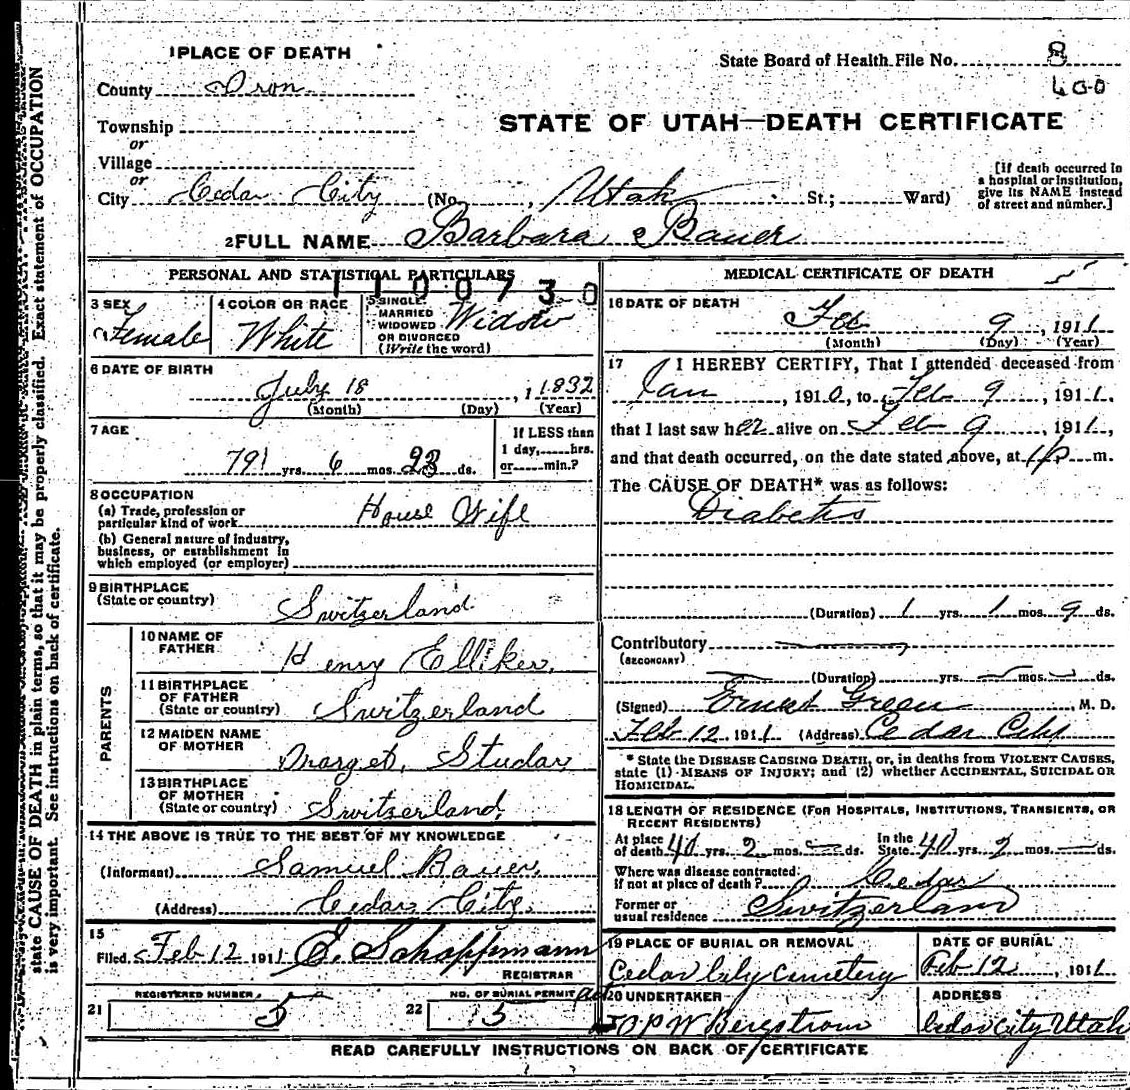 1 PLACE OF DEATH
State Board of Health File No. 8
400
County Iron
STATE OF UTAH—DEATH CERTIFICATE
Township
or
Village
or
City Cedar City (No. , Utah St.; Ward)
[If death occurred in
a hospital or institution,
give its NAME instead
of street and number.]
2 FULL NAME Barbara Bauer
PERSONAL AND STATISTICAL PARTICULARS
1100730
3 SEX
Female
4 COLOR OR RACE
White
5 SINGLE,
MARRIED
WIDOWED
OR DIVORCED
(Write the word)
Widow
6 DATE OF BIRTH
July 18, 1832
(Month) (Day) (Year)
7 AGE
79 yrs. 6 mos. 23 ds.
If LESS than
1 day, hrs.
or min.?
8 OCCUPATION
(a) Trade, profession or
particular kind of work House Wife
(b) General nature of industry,
business, or establishment in
which employed (or employer)
9 BIRTHPLACE
(State or country) Switzerland
PARENTS
10 NAME OF
FATHER Henry Elliker,
11 BIRTHPLACE
OF FATHER
(State or country) Switzerland
12 MAIDEN NAME
OF MOTHER Marget, Studar
13 BIRTHPLACE
OF MOTHER
(State or country) Switzerland,
14 THE ABOVE IS TRUE TO THE BEST OF MY KNOWLEDGE
(Informant) Samuel Bauer,
(Address) Cedar City,
15
Filed Feb 12 1911 E. Schoppmann
REGISTRAR
21 REGISTERED NUMBER 5
22 NO. OF BURIAL PERMIT 5
MEDICAL CERTIFICATE OF DEATH
16 DATE OF DEATH
Feb 9, 1911
(Month) (Day) (Year)
17 I HEREBY CERTIFY, That I attended deceased from
Jan, 1910, to Feb 9, 1911,
that I last saw her alive on Feb 9, 1911,
and that death occurred, on the date stated above, at m.
The CAUSE OF DEATH* was as follows:
Diabetis
(Duration) 1 yrs. 1 mos. 9 ds.
Contributory
(SECONDARY)
(Duration) yrs. mos. ds.
(Signed) Ernest Green, M. D.
Feb 12 1911 (Address) Cedar City
* State the DISEASE CAUSING DEATH, or, in deaths from VIOLENT CAUSES,
state (1) MEANS OF INJURY; and (2) whether ACCIDENTAL, SUICIDAL OR
HOMICIDAL.
18 LENGTH OF RESIDENCE (FOR HOSPITALS, INSTITUTIONS, TRANSIENTS, OR
RECENT RESIDENTS)
At place
of death 40 yrs. 2 mos. ds. In the
State 40 yrs. 2 mos. ds.
Where was disease contracted,
If not at place of death? Cedar
Former or
usual residence Switzerland
19 PLACE OF BURIAL OR REMOVAL
Cedar City Cemetery
DATE OF BURIAL
Feb 12, 1911
20 UNDERTAKER
O P W Bergstrom
ADDRESS
Cedar City Utah
READ CAREFULLY INSTRUCTIONS ON BACK OF CERTIFICATE
state CAUSE OF DEATH in plain terms, so that it may be properly classified. Exact statement of OCCUPATION
is very important. See instructions on back of certificate.